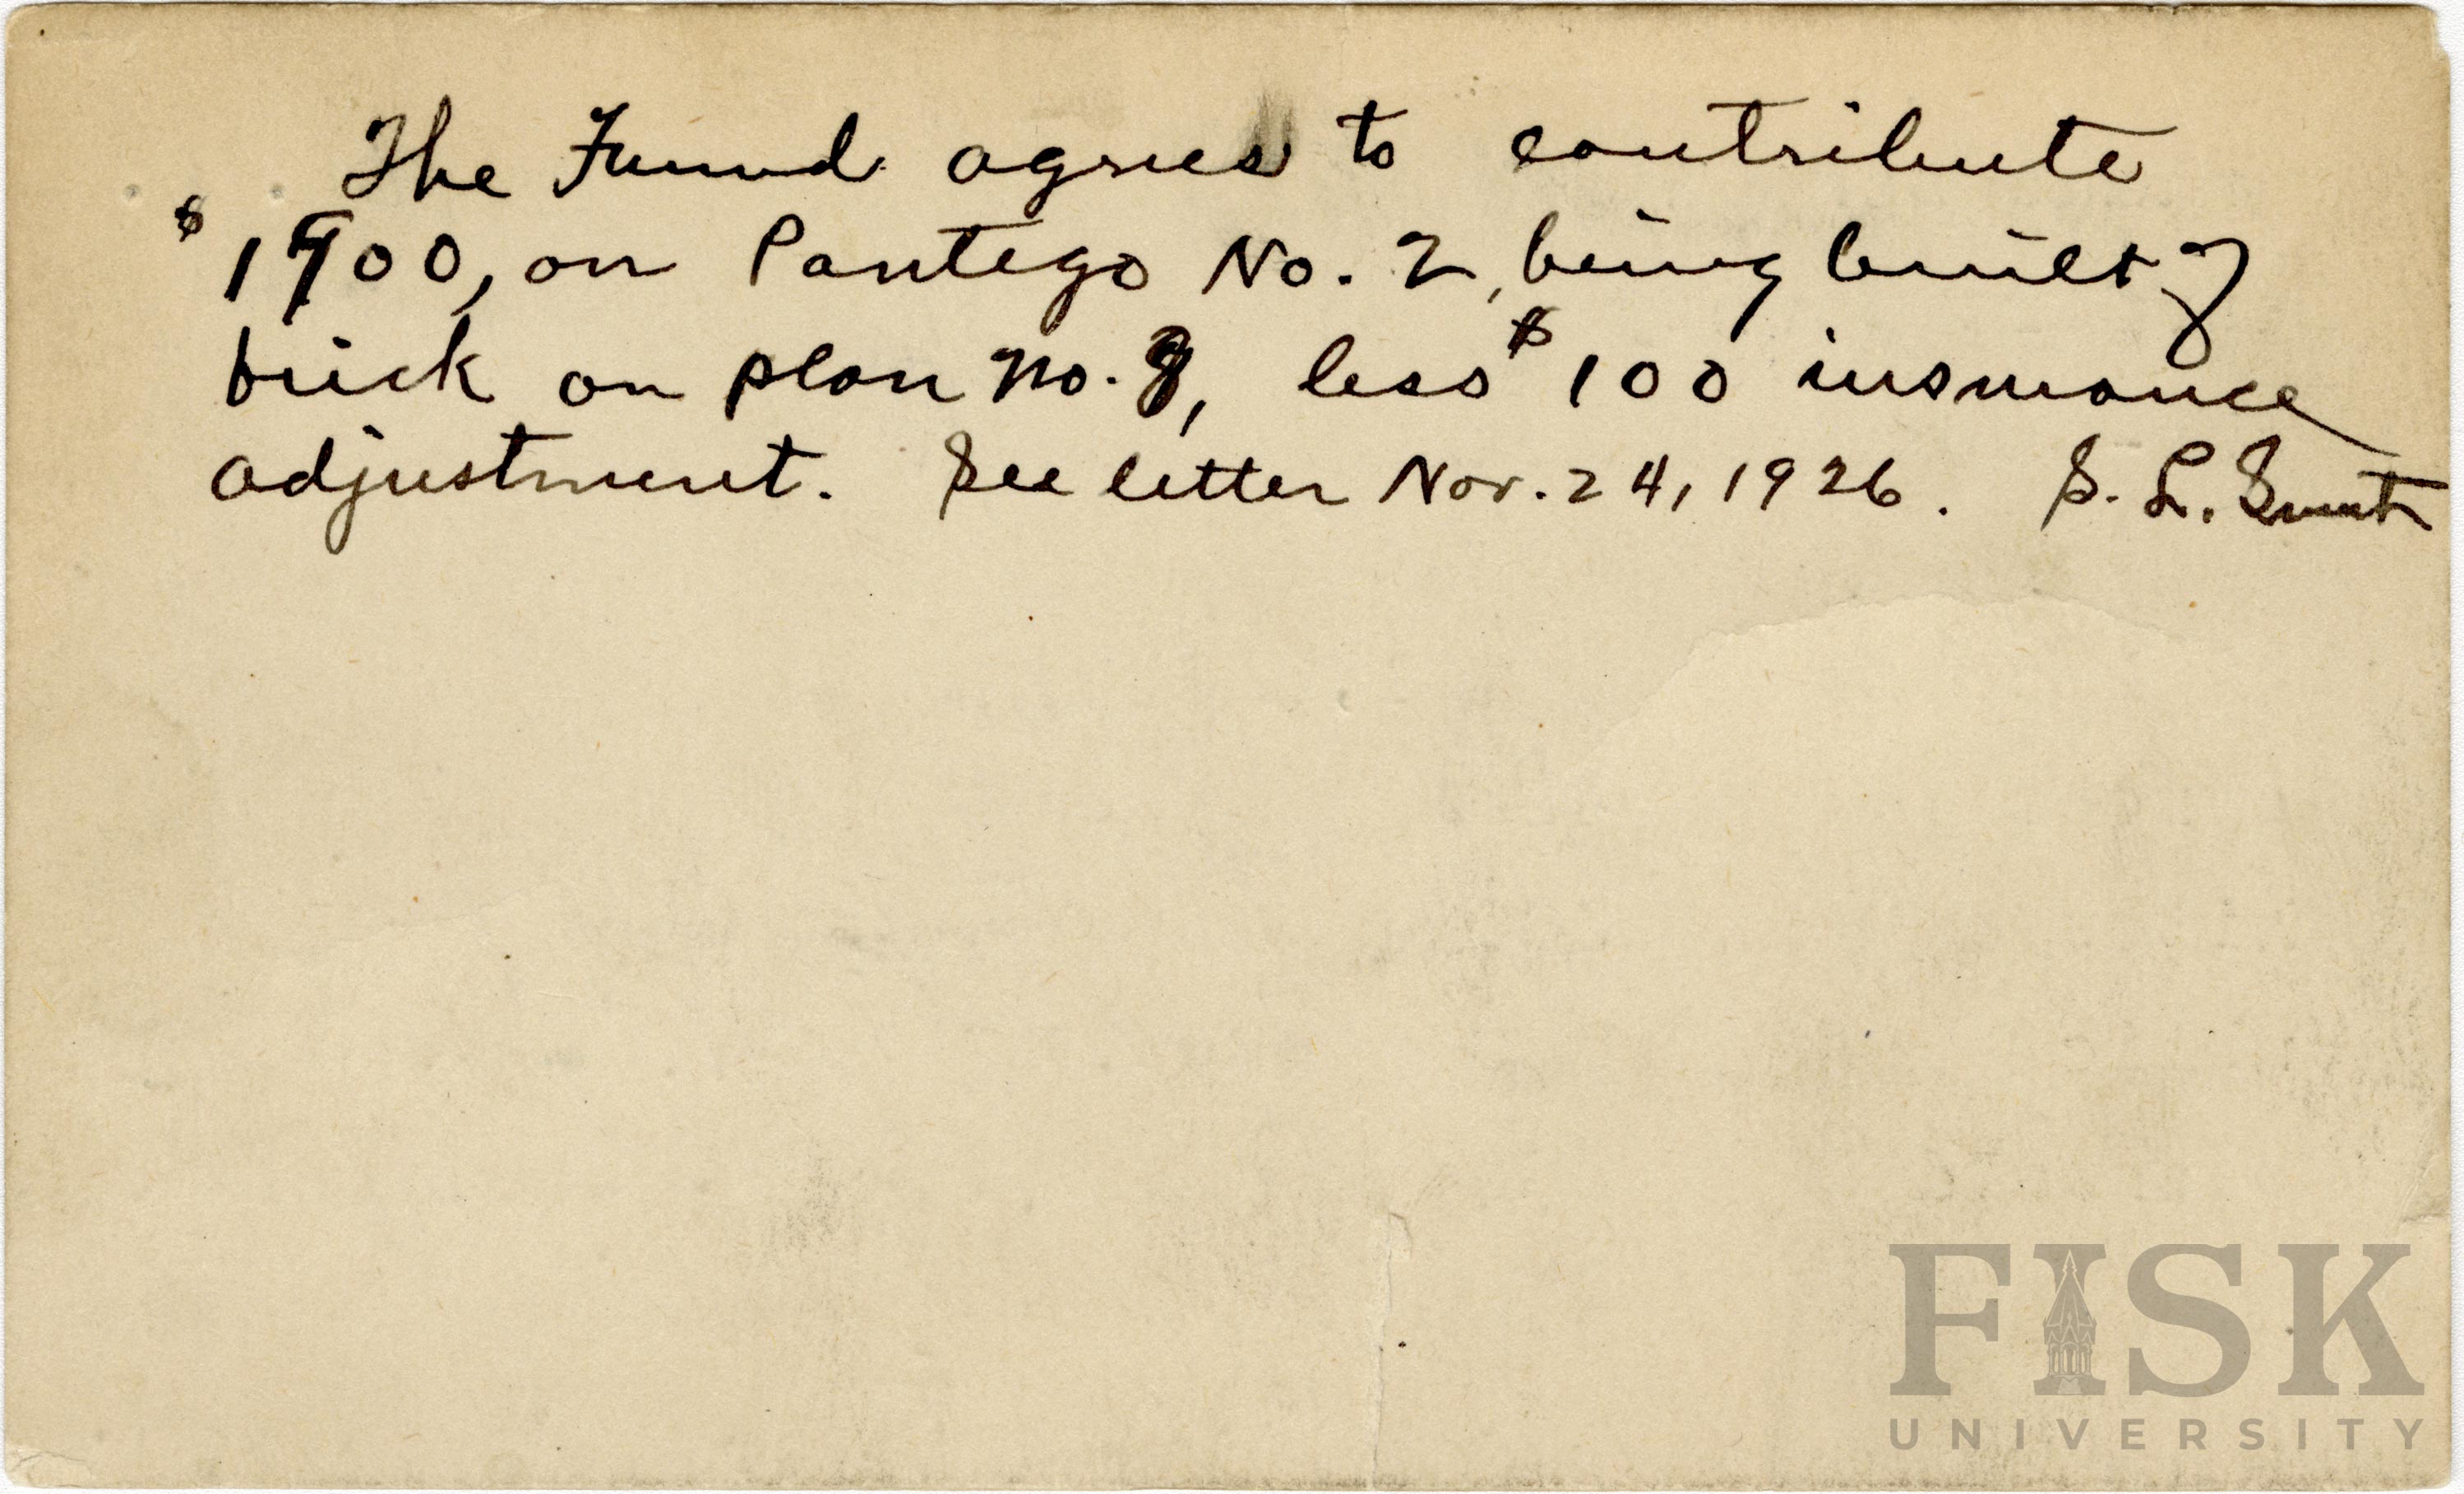 The Fund agrees to contribute
on Pantego No. 2, being built of
brick on plan No. less $100 insurance
adjustment. See letter Nov. 24, 1926. S. L. Smith
FISK
UNIVERSITY